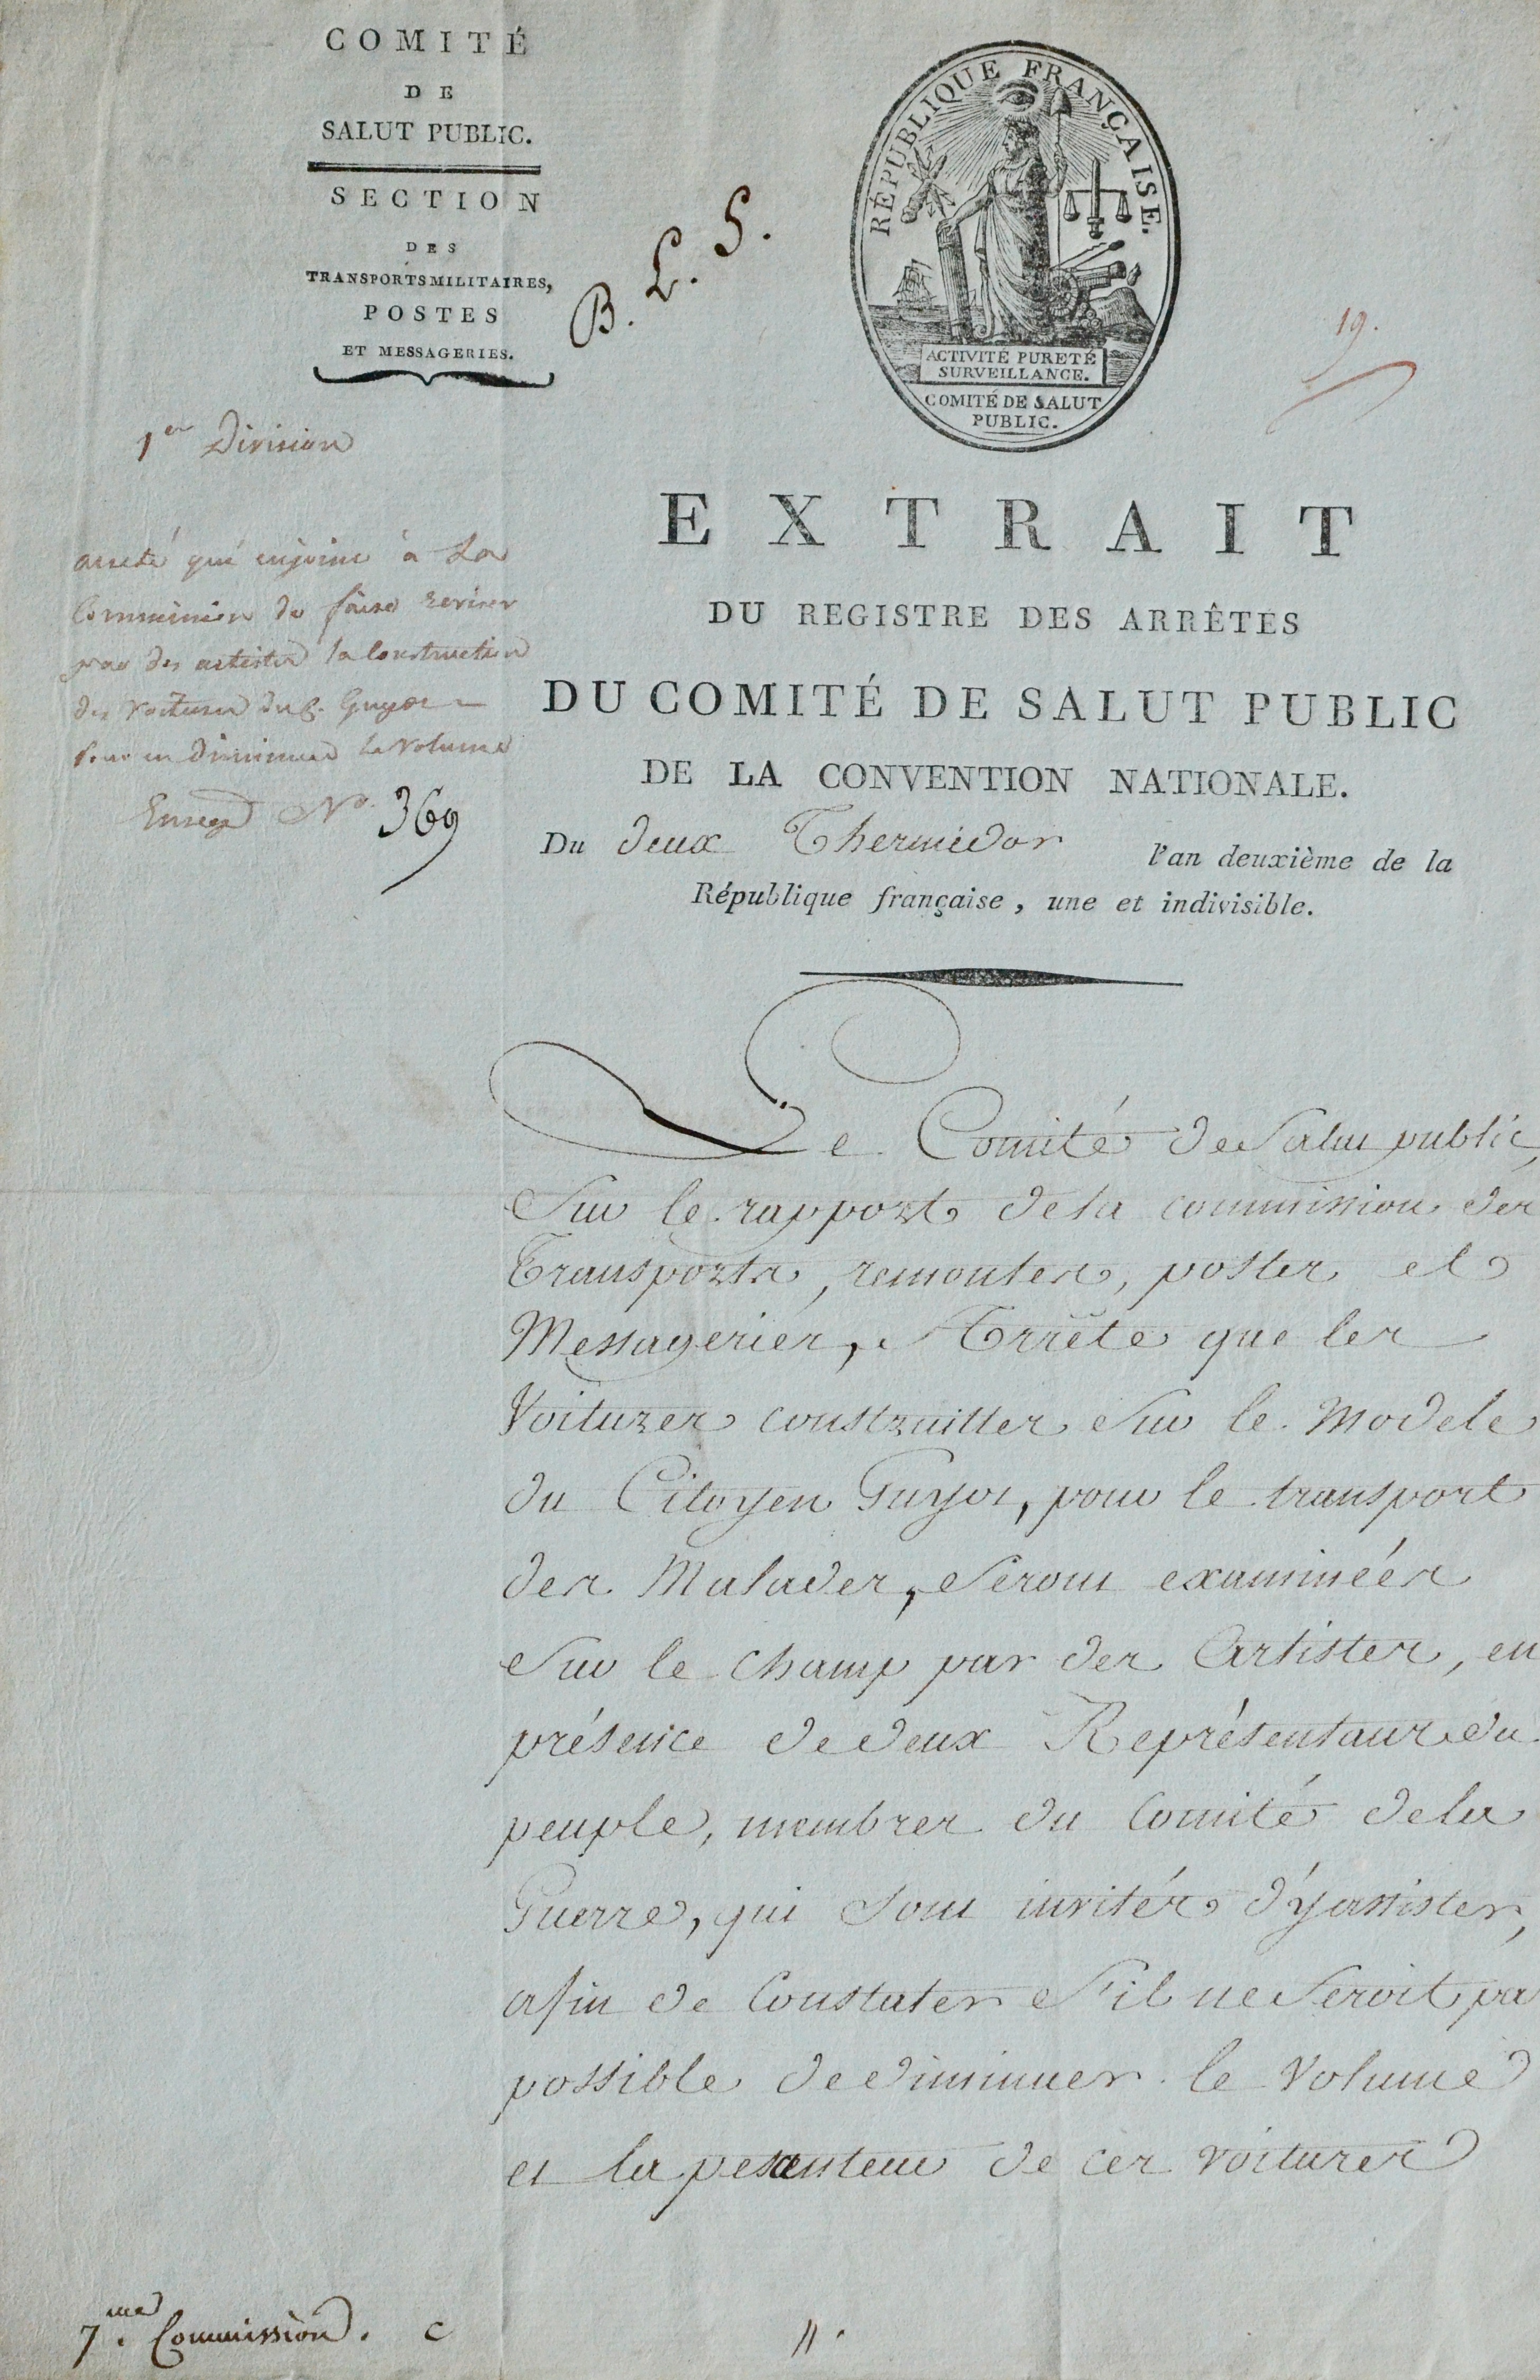 COMITÉ
DE
SALUT PUBLIC.
SECTION
DES
TRANSPORTS MILITAIRES,
POSTES
ET MESSAGERIES.
B. L. S.
RÉPUBLIQUE FRANÇAISE.
ACTIVITÉ PURETÉ
SURVEILLANCE.
COMITÉ DE SALUT
PUBLIC.
19.
1er Division
arreté qui enjoint à La
Commission de faire reviser
par des artistes la Construction
des voitures du C. Guyot
Pour en Diminuer le Volume
Enregé No. 369
EXTRAIT
DU REGISTRE DES ARRÊTÉS
DU COMITÉ DE SALUT PUBLIC
DE LA CONVENTION NATIONALE.
Du deux Thermidor l'an deuxième de la
République française, une et indivisible.
Le Comité de Salut public,
Sur le rapport de la commission des
Transports, remontes, postes et
Messageries, Arrête que les
Voitures construittes Sur le Modele
du Citoyen Guyot, pour le transport
des Malades, Seront examinées
Sur le champ par des Artistes, en
présence de deux Représentans du
peuple, membres du Comité de la
Guerre, qui Sont invités d'y assister,
afin de Constater S'il ne Seroit pa
possible de diminuer le Volume
et la pesanteur de ces voitures
7.me Commission. C
11.